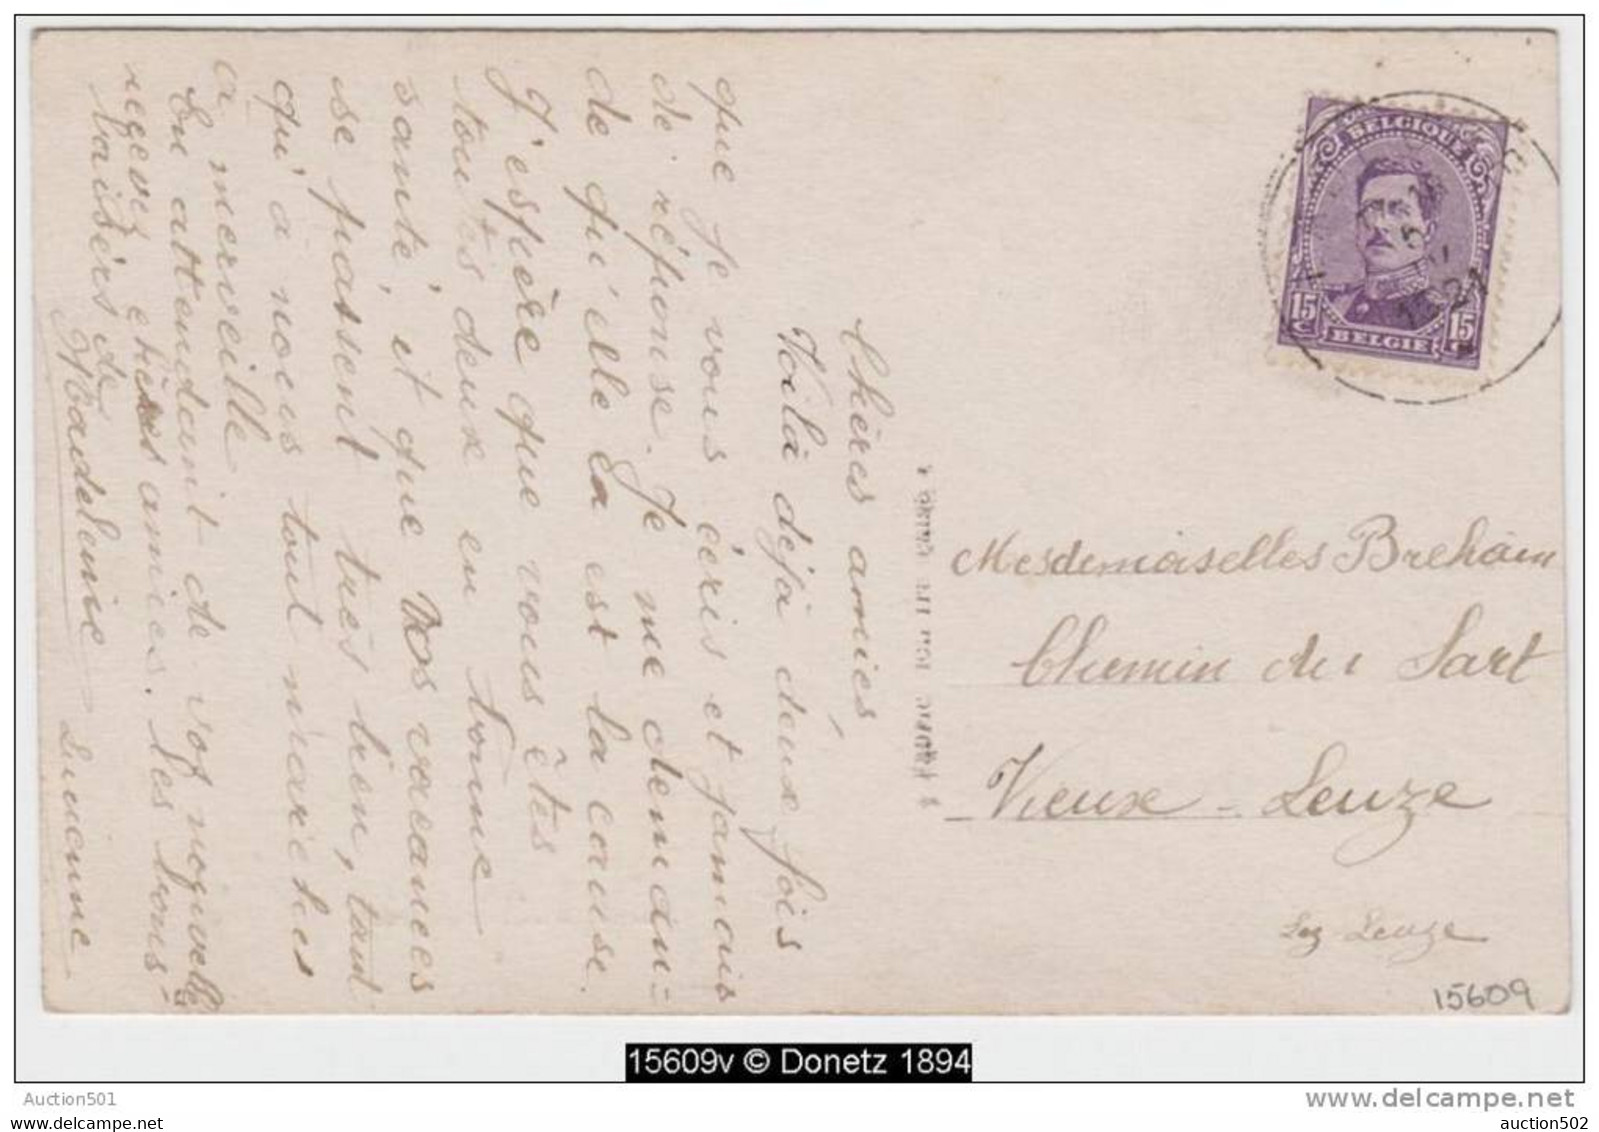 Chères amies,
Voilà déjà deux fois
que je vous écris et jamais
de réponse. Je me deman=
de qu'elle en est la cause.
J'espère que vous êtes
toutes deux en bonne
santé, et que vos vacances
se passent très bien, tant
qu'à nous tout marche
à merveille
En attendant de vos nouvelles
recevez chères amies. les trous-
baisers de
Madeleine Lucienne
BELGIQUE
15 C 15 C
BELGIE
21
Mesdemoiselles Brehain
Chemin du Sart
Vieux-Leuze
Lez Leuze
15609
15609v © Donetz 1894
Auction501
www.delcampe.net
auction502